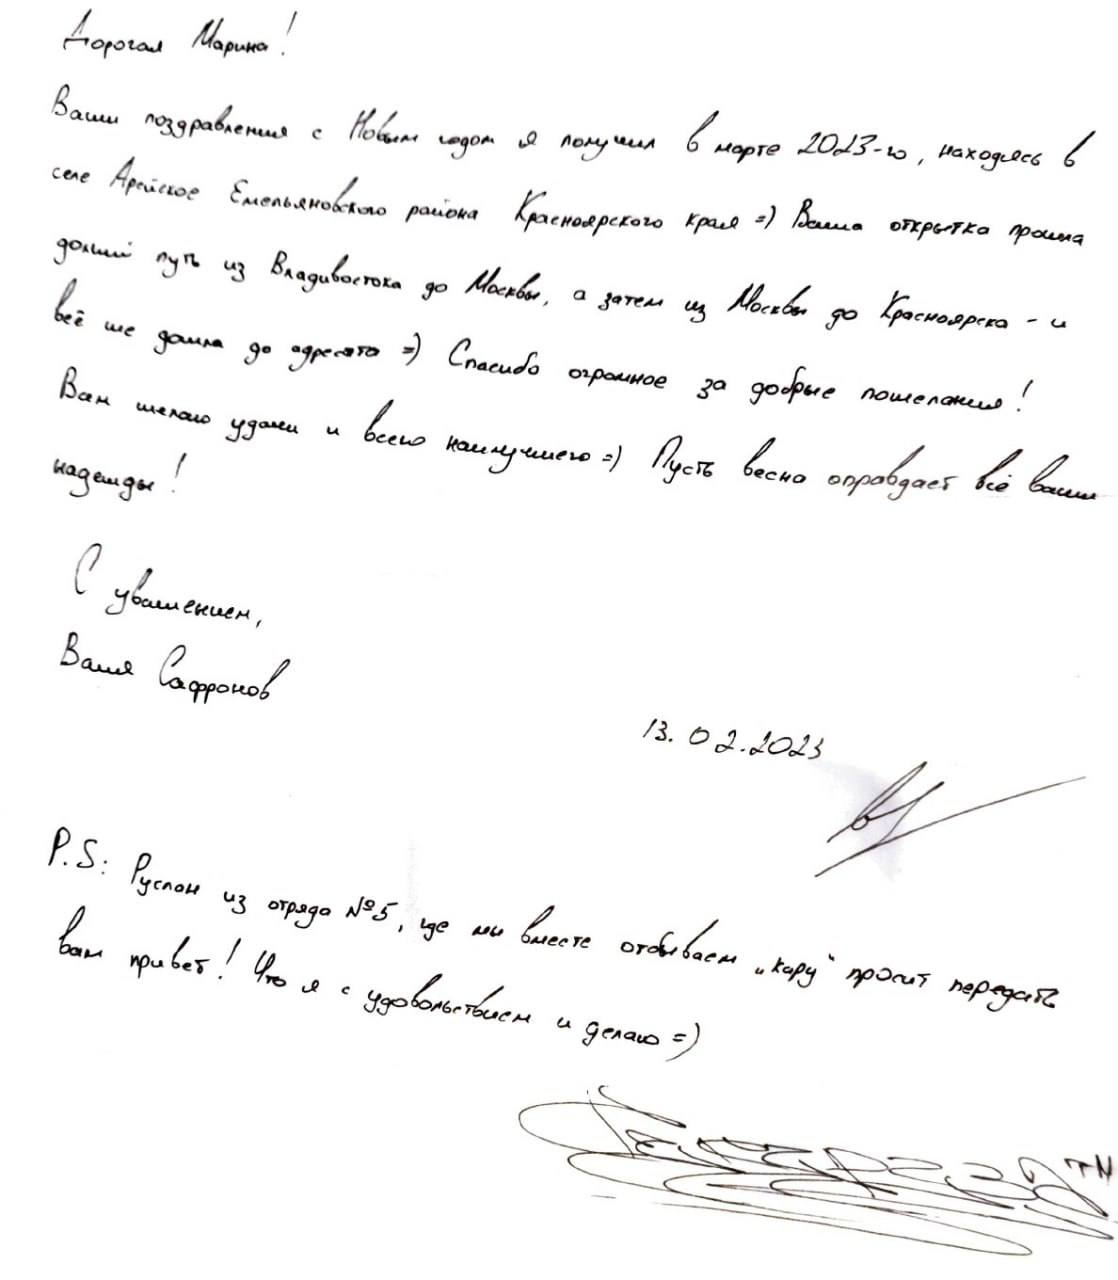 Дорогая Марина!
Ваши поздравления с Новым годом я получил в марте 2023-го, находясь в
селе Арейское Емельяновского района Красноярского края =) Ваша открытка прошла
долгий путь из Владивостока до Москвы, а затем из Москвы до Красноярска - и
всё же дошла до адресата =) Спасибо огромное за добрые пожелания!
Вам желаю удачи и всего наилучшего =) Пусть весна оправдает все ваши
надежды!
С уважением,
Ваня Сафронов
13.02.2023
P.S: Руслан из отряда №5, где мы вместе отбываем „кару“ просит передать
вам привет! Что я с удовольствием и делаю =)